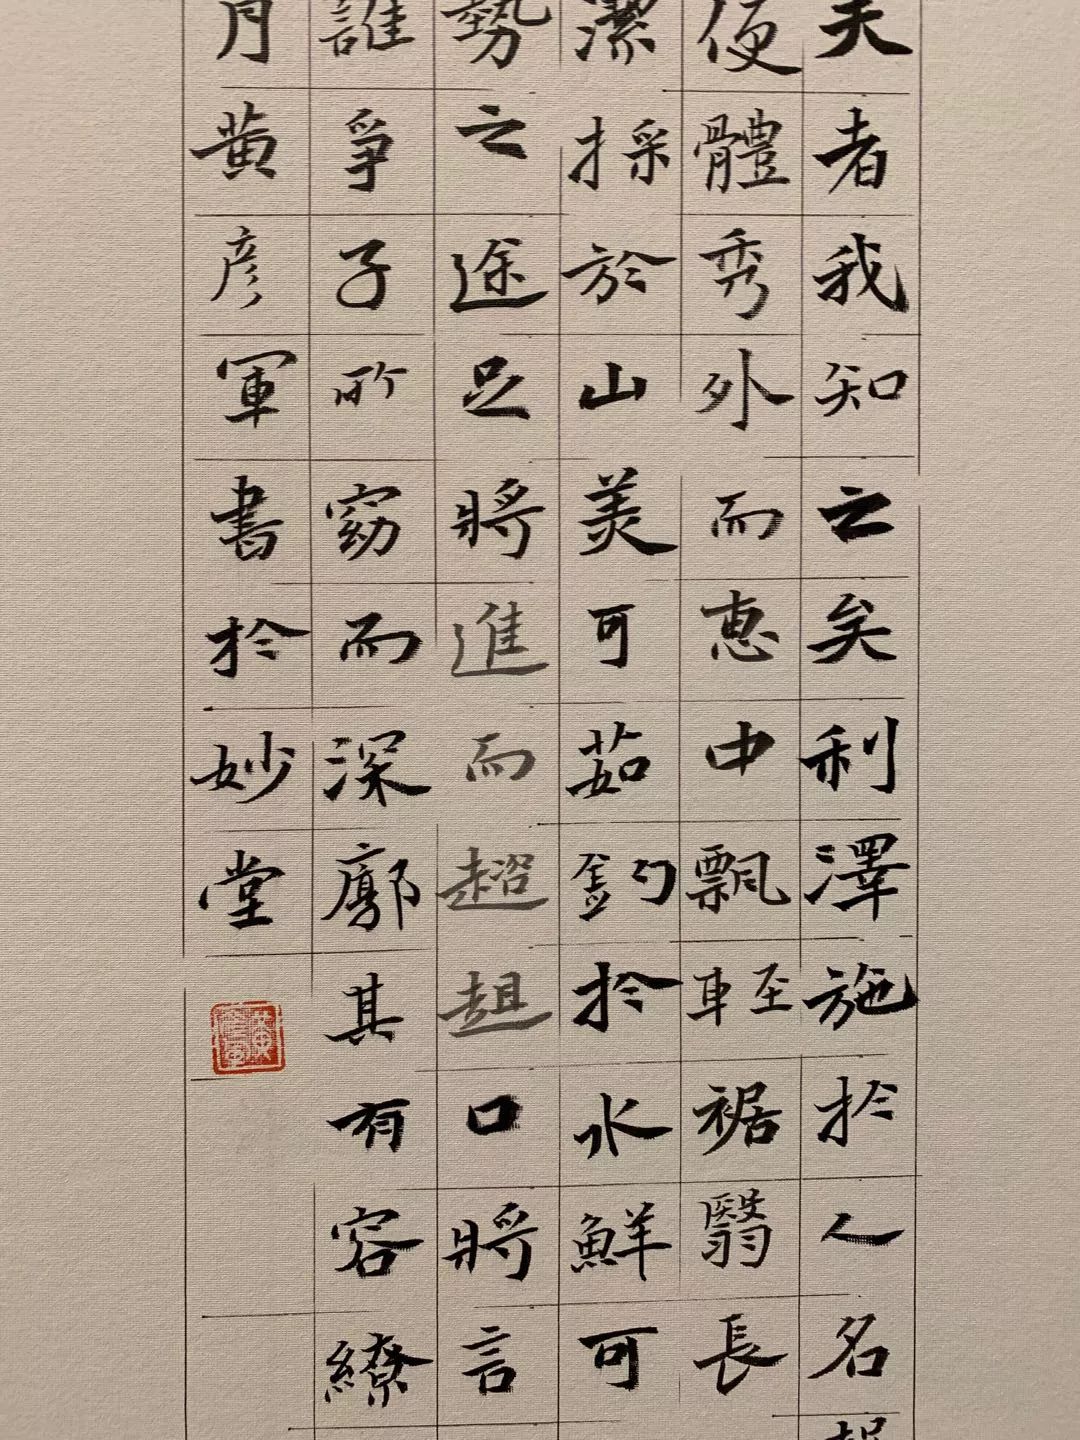 夫者我知之矣利澤施於人名
便體秀外而惠中飄輕裾翳長
潔採於山美可茹釣於水鮮可
勢之途足將進而趑趄口將言
誰爭子所窈而深廓其有容繚
月黃彥軍書於妙堂